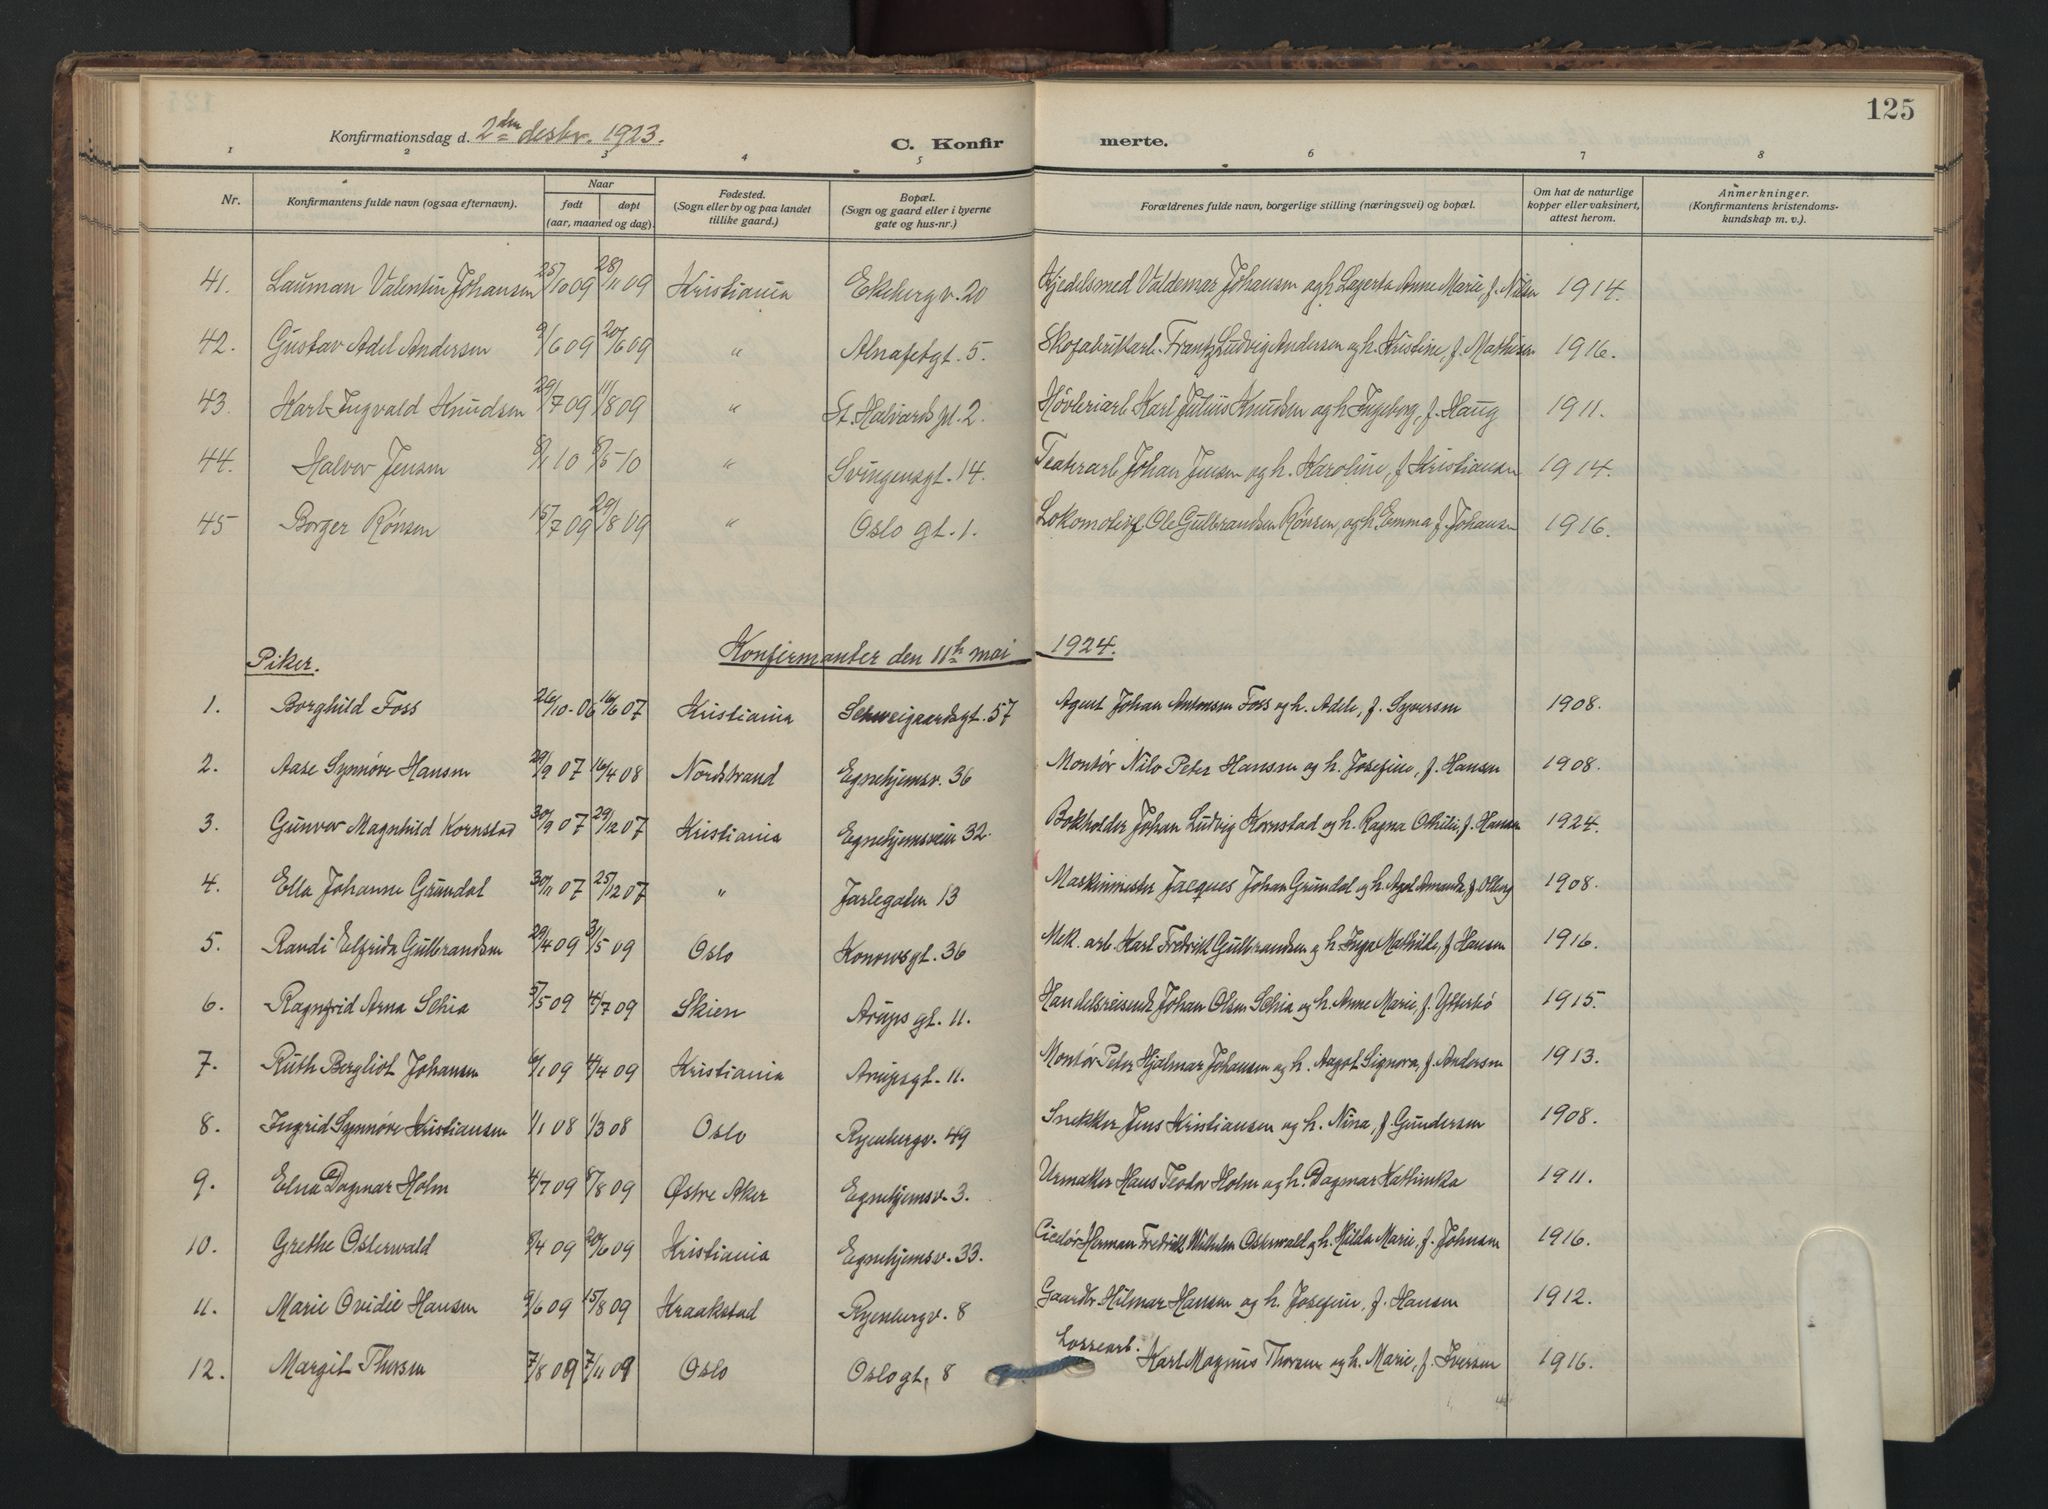 125
Konfirmationsdag d. 2den desbr. 1923.
C. Konfirmerte.
1 2 3 4 5 6 7 8
Nr.
Konfirmantens fulde navn (ogsaa efternavn).
Naar
født døpt
(aar, maaned og dag).
Fødested.
(Sogn eller by og paa landet
tillike gaard.)
Bopæl.
(Sogn og gaard eller i byerne
gate og hus-nr.)
Forældrenes fulde navn, borgerlige stilling (næringsvei) og bopæl.
Om hat de naturlige
kopper eller vaksinert,
attest herom.
Anmerkninger.
(Konfirmantens kristendoms-
kundskap m. v.)
41. Lauman Valentin Johansen 25/10 09 28/11 09 Kristiania Ekebergv. 20 Kjedelsmed Valdemar Johansen og h. Lagerta Anne Marie, f. Nilsen 1914.
42. Gustav Adel Andersen 9/6 09 20/6 09 " Alnafetgt. 5. Skofabrikkarb. Frantz Ludvig Andersen og h. Kristine, f. Mathisen 1916.
43. Karl Ingvald Knudsen 29/7 09 11/8 09 " St. Halvards pl. 2. Høvleriarb. Karl Julius Knudsen og h. Ingeborg, f. Haug 1911.
44. Halvor Jensen 8/1 10 8/5 10 " Svingensgt. 14. Teaterarb. Johan Jensen og h. Karoline, f. Kristiansen 1914.
45 Borger Rönsen 15/7 09 29/8 09 " Oslo gt. 1. Lokomotivf. Ole Gulbrandsen Rønsen, og h. Emma f. Johansen 1916.
Piker. Konfirmanter den 11te mai 1924.
1. Borghild Foss 26/10-06 16/6 07 Kristiania Schweigaardsgt. 57 Agent Johan Antonsen Foss og h. Adele, f. Syversen 1908.
2. Aase Synnøve Hansen 29/9 07 16/4 08 Nordstrand Egnehjemsv. 36 Montør Nils Peter Hansen og h. Josefine, f. Hansen 1908.
3. Gunvor Magnhild Kornstad 30/9 07 29/12 07 Kristiania Egnehjemsveien 32. Bokholder Johan Ludvig Kornstad og h. Ragna Othilie, f. Hansen 1924.
4. Ella Johanne Grundal 30/11 07 25/12 07 " Jarlegaten 13 Maskinmester Jacques Johan Grundal og h. Amanda, f. 1908.
5. Randi Elfrida Gulbrandsen 29/4 09 31/5 09 Oslo Konowsgt. 36 Mek. arb. Karl Fredrik Gulbrandsen og h. Inga Mathilde, f. Hansen 1916.
6. Ragnfrid Arna Schia 5/5 09 4/7 09 Skien Arups gt. 11. Handelsreisende Johan Olsen Schia og h. Anne Marie, f. Ytterbö 1915.
7. Ruth Bergliot Johansen 6/1 09 4/4 09 Kristiania Arupsgt. 11. Montør Peter Hjalmar Johansen og h. Aagot Signora, f. Andersen 1913.
8. Ingrid Synnøve Kristiansen 1/1 08 1/3 08 Oslo Ryenbergv. 49 Snekker Jens Kristiansen og h. Nina, f. Gundersen 1908.
9. Elna Dagmar Holm 4/7 09 8/8 09 Østre Aker Egnehjemsv. 3. Urmaker Hans Teodor Holm og h. Dagmar Kathinka 1911.
10. Grethe Osterwald 8/4 09 20/6 09 Kristiania Egnehjemsv. 33. Herman Fredrik Wilhelm Osterwald og h. Hilda Marie, f. Johnsen 1916.
11. Marie Ovidie Hansen 9/6 09 15/8 09 Kraakstad Ryenbergv. 8 Gaardbr. Hilmar Hansen og h. Josefine, f. Hansen 1912.
12. Margit Thorsen 7/8 09 7/11 09 Oslo Oslogt. 8 Lossearb. Karl Magnus Thorsen og h. Marie, f. Iversen 1916.